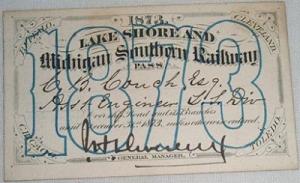 1873.
LAKE SHORE AND
Michigan Southern Railway
PASS
C. B. Couch Esq.
Asst Engineer
Over this Road and its Branches
until December 31st 1873, unless otherwise ordered.
GENERAL MANAGER.
BUFFALO.
CLEVELAND.
CHICAGO.
TOLEDO.
1873